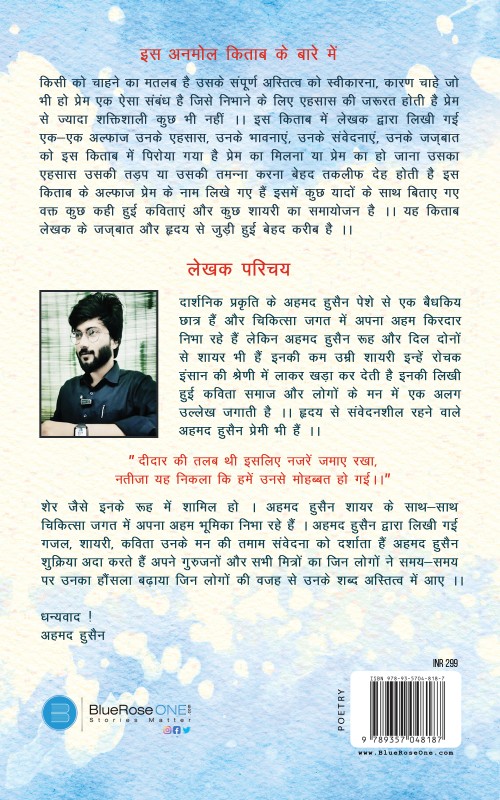 इस अनमोल किताब के बारे में
किसी को चाहने का मतलब है उसके संपूर्ण अस्तित्व को स्वीकारना, कारण चाहे जो
भी हो प्रेम एक ऐसा संबंध है जिसे निभाने के लिए एहसास की जरूरत होती है प्रेम
से ज्यादा शक्तिशाली कुछ भी नहीं ।। इस किताब में लेखक द्वारा लिखी गई
एक–एक अल्फाज उनके एहसास, उनके भावनाएं, उनके संवेदनाएं, उनके जज्बात
को इस किताब में पिरोया गया है प्रेम का मिलना या प्रेम का हो जाना उसका
एहसास उसकी तड़प या उसकी तमन्ना करना बेहद तकलीफ देह होती है इस
किताब के अल्फाज प्रेम के नाम लिखे गए हैं इसमें कुछ यादों के साथ बिताए गए
वक्त कुछ कही हुई कविताएं और कुछ शायरी का समायोजन है ।। यह किताब
लेखक के जज्बात और हृदय से जुड़ी हुई बेहद करीब है ।।
लेखक परिचय
दार्शनिक प्रकृति के अहमद हुसैन पेशे से एक बैधकिय
छात्र हैं और चिकित्सा जगत में अपना अहम किरदार
निभा रहे हैं लेकिन अहमद हुसैन रूह और दिल दोनों
से शायर भी हैं इनकी कम उम्री शायरी इन्हें रोचक
इंसान की श्रेणी में लाकर खड़ा कर देती है इनकी लिखी
हुई कविता समाज और लोगों के मन में एक अलग
उल्लेख जगाती है ।। हृदय से संवेदनशील रहने वाले
अहमद हुसैन प्रेमी भी हैं ।।
" दीदार की तलब थी इसलिए नजरें जमाए रखा,
नतीजा यह निकला कि हमें उनसे मोहब्बत हो गई।।"
शेर जैसे इनके रूह में शामिल हो । अहमद हुसैन शायर के साथ–साथ
चिकित्सा जगत में अपना अहम भूमिका निभा रहे हैं । अहमद हुसैन द्वारा लिखी गई
गजल, शायरी, कविता उनके मन की तमाम संवेदना को दर्शाता हैं अहमद हुसैन
शुक्रिया अदा करते हैं अपने गुरुजनों और सभी मित्रों का जिन लोगों ने समय–समय
पर उनका हौंसला बढ़ाया जिन लोगों की वजह से उनके शब्द अस्तित्व में आए ।।
धन्यवाद !
अहमद हुसैन
INR 299
ISBN 978-93-5704-818-7
POETRY
9 789357 048187
www.BlueRoseOne.com
B
BlueRoseONE.com
Stories Matter